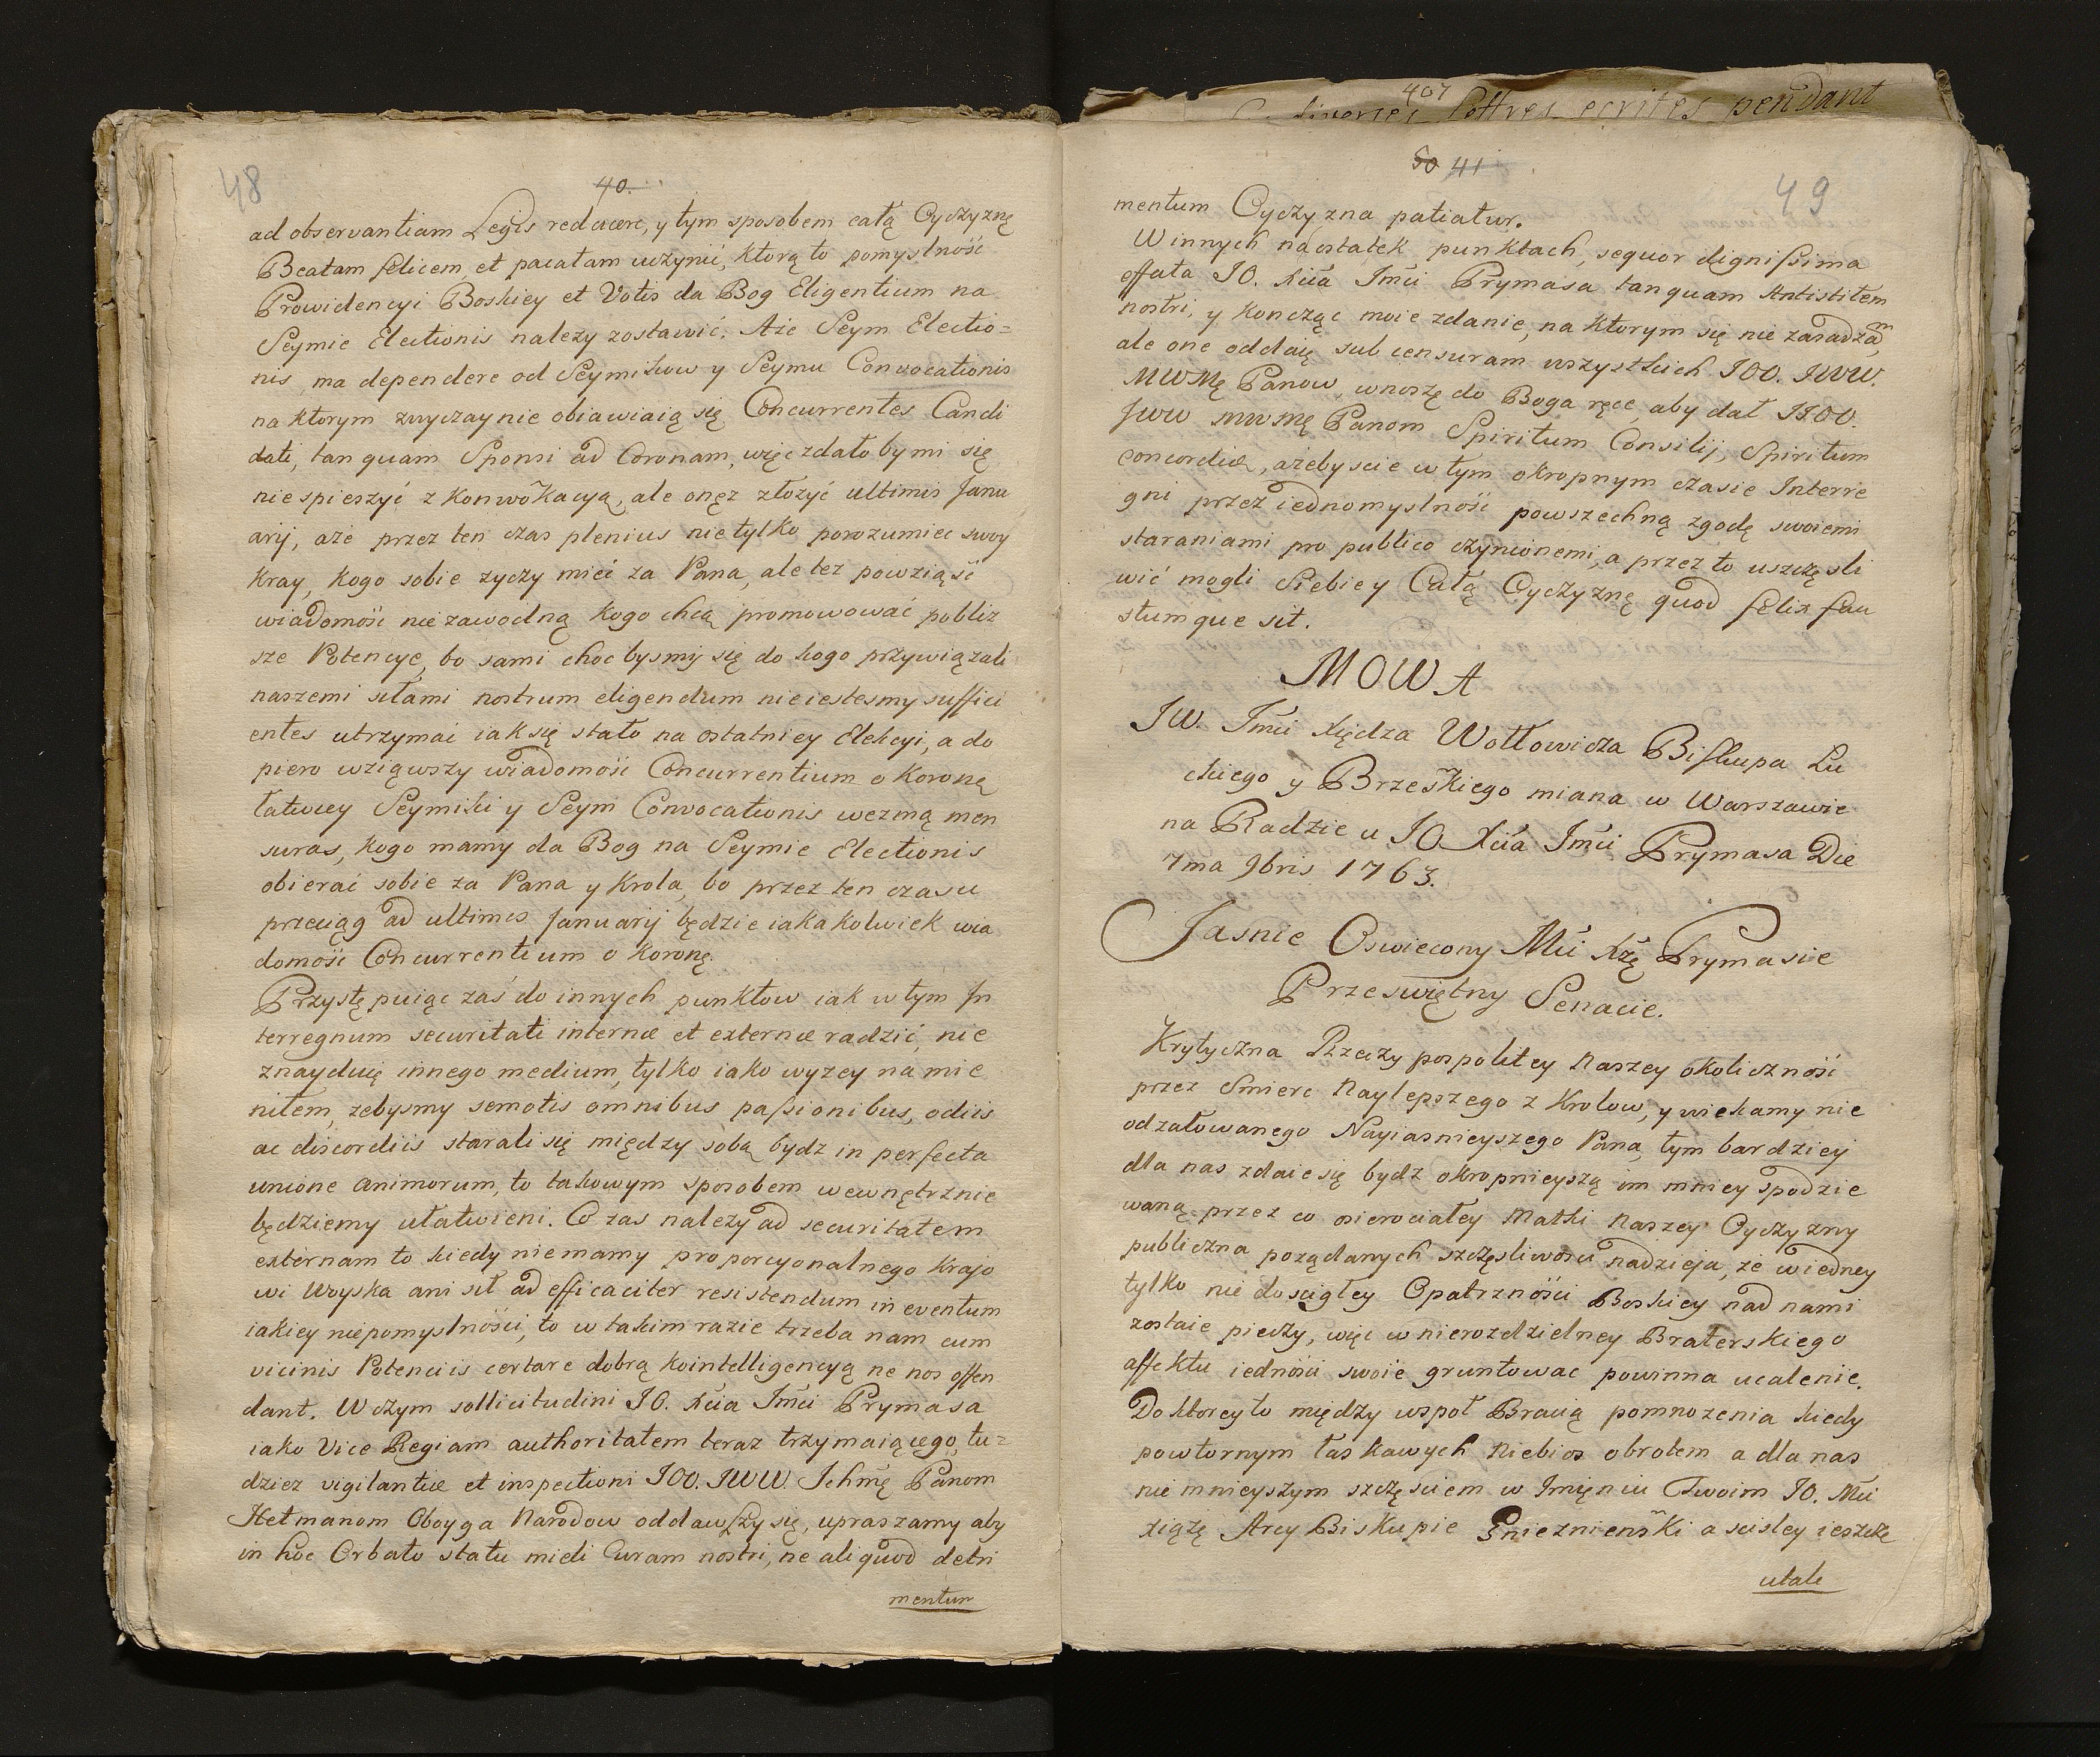 48
40.
ad observantiam Legis reducere, y tym sposobem całą Oyczyznę
Beatam felicem et pacatam uczynić, ktorą to pomyslność
Prowidencyi Boskiey et Votis da Bog Eligentium na
Seymie Electionis nalezy zostawić. Aże Seym Electio=
nis ma dependere od Seymikow y Seymu Convocationis
na ktorym zwyczaynie obiawiaią się Concurrentes Candi
dati, tanquam Sponsi ad Coronam, więc zdałoby mi się
nie spieszyć z Konwokacyą, ale onęz złożyć ultimis Janu
arij, aże przez ten czas plenius nietylko porozumiec swoy
Kray, kogo sobie zyczy mieć za Pana, ale tez powziąść
wiadomość niezawodną kogo chcą promowować pobliz
sze Potencye, bo sami choc bysmy się do kogo przywiązali
naszemi siłami nostrum eligendum nieiestesmy suffici
entes utrzymać iak się stało na ostatniey Elekcyi, a do
piero wziąwszy wiadomość Concurrentium o Koronę
łatwiey Seymiki y Seym Convocationis wezmą men
suras, kogo mamy da Bog na Seymie Electionis
obierać sobie za Pana y Krola, bo przez ten czasu
przeciąg ad ultimis Januarij będzie iakakolwiek wia
domość Concurrentium o Koronę.
Przystępuiąc zaś do innych punktow iak w tym In
terregnum securitati internæ et externæ radzić, nie
znayduię innego medium, tylko iako wyzey namie
niłem, zebysmy semotis omnibus passionibus, odiis
ac discordiis starali się między sobą bydz in perfecta
unione animorum, to takowym sposobem wewnętrznie
będziemy ułatwieni. Co zas nalezy ad securitatem
externam to kiedy niemamy proporcyonalnego Krajo
wi Woyska ani sił ad efficaciter resistendum in eventum
iakiey niepomyslności, to w takim razie trzeba nam cum
vicinis Potenciis certare dobrą kointelligencyą ne nos offen
dant. W czym sollicitudini JO. Xcia Jmci Prymasa
iako Vice Regiam authoritatem teraz trzymaiącego, tu=
dziez vigilantiæ et inspectioni JOO. JWW. Ichmę Panom
Hetmanom Oboyga Narodow oddawszy się, upraszamy aby
in hoc Orbato statu mieli Curam nostri, ne aliquod detri
mentum
407
diverses lettres ecrites pendant
50 41
49
mentum Oyczyzna patiatur.
W innych naostatek punktach, sequor dignissima
effata JO. Xcia Jmci Prymasa tanquam Antistitem
nostri, y kończąc moie zdanie, na ktorym się nie zasadzam,
ale one oddaię sub censuram wszystkich JOO. JWW.
MWMę Panow, wnoszę do Boga ręce aby dał JJOO.
JWW MWMę Panom Spiritum Consilij, Spiritum
concordiæ, ażebyscie w tym okropnym czasie Interre
gni przez iednomyslność powszechną zgodę swoiemi
staraniami pro publico czynionemi, a przez to uszczęsli
wić mogli Siebie y Całą Oyczyznę quod felix fau
stumque sit.
MOWA
JW. Jmci Xiędza Wołłowicza Biskupa Łu
ckiego y Brzeskiego miana w Warszawie
na Radzie u JO Xcia Jmci Prymasa Die
7ma 9bris 1763.
Jasnie Oswiecony Mci Xżę Prymasie
Przeswiętny Senacie.
Krytyczna Rzeczypospolitey Naszey okoliczność
przez Smierc Naylepszego z Krolow, y wiekamy nie
odzałowanego Nayiasnieyszego Pana, tym bardziey
dla nas zdaie się bydz okropnieyszą im mniey spodzie
waną, przez co osierociałey Matki Naszey Oyczyzny
publiczna poządanych szczęsliwosci nadzieja, że wiedney
tylko nie doscigłey Opatrzności Boskiey nad nami
zostaie pieczy, więc w nierozdzielney Braterskiego
affektu iedności swoie gruntowac powinna ucalenie.
Do ktorey to między wspoł Bracią pomnozenia kiedy
powtornym łaskawych Niebios obrotem a dla nas
nie mnieyszym szczęsciem w Imięniu Twoim JO. Mci
Xiąże Arcy Biskupie Gnieznienski a scisley ieszcze
utale